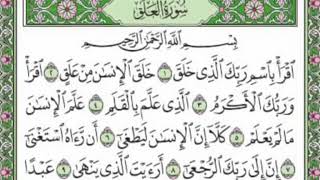 سُورَةُ الْعَلَقِ
بِسْمِ اللَّهِ الرَّحْمَٰنِ الرَّحِيمِ
اقْرَأْ بِاسْمِ رَبِّكَ الَّذِي خَلَقَ ١ خَلَقَ الْإِنسَانَ مِنْ عَلَقٍ ٢ اقْرَأْ
وَرَبُّكَ الْأَكْرَمُ ٣ الَّذِي عَلَّمَ بِالْقَلَمِ ٤ عَلَّمَ الْإِنسَانَ
مَا لَمْ يَعْلَمْ ٥ كَلَّا إِنَّ الْإِنسَانَ لَيَطْغَىٰ ٦ أَن رَّءَاهُ اسْتَغْنَىٰ
٧ إِنَّ إِلَىٰ رَبِّكَ الرُّجْعَىٰ ٨ أَرَءَيْتَ الَّذِي يَنْهَىٰ ٩ عَبْدًا